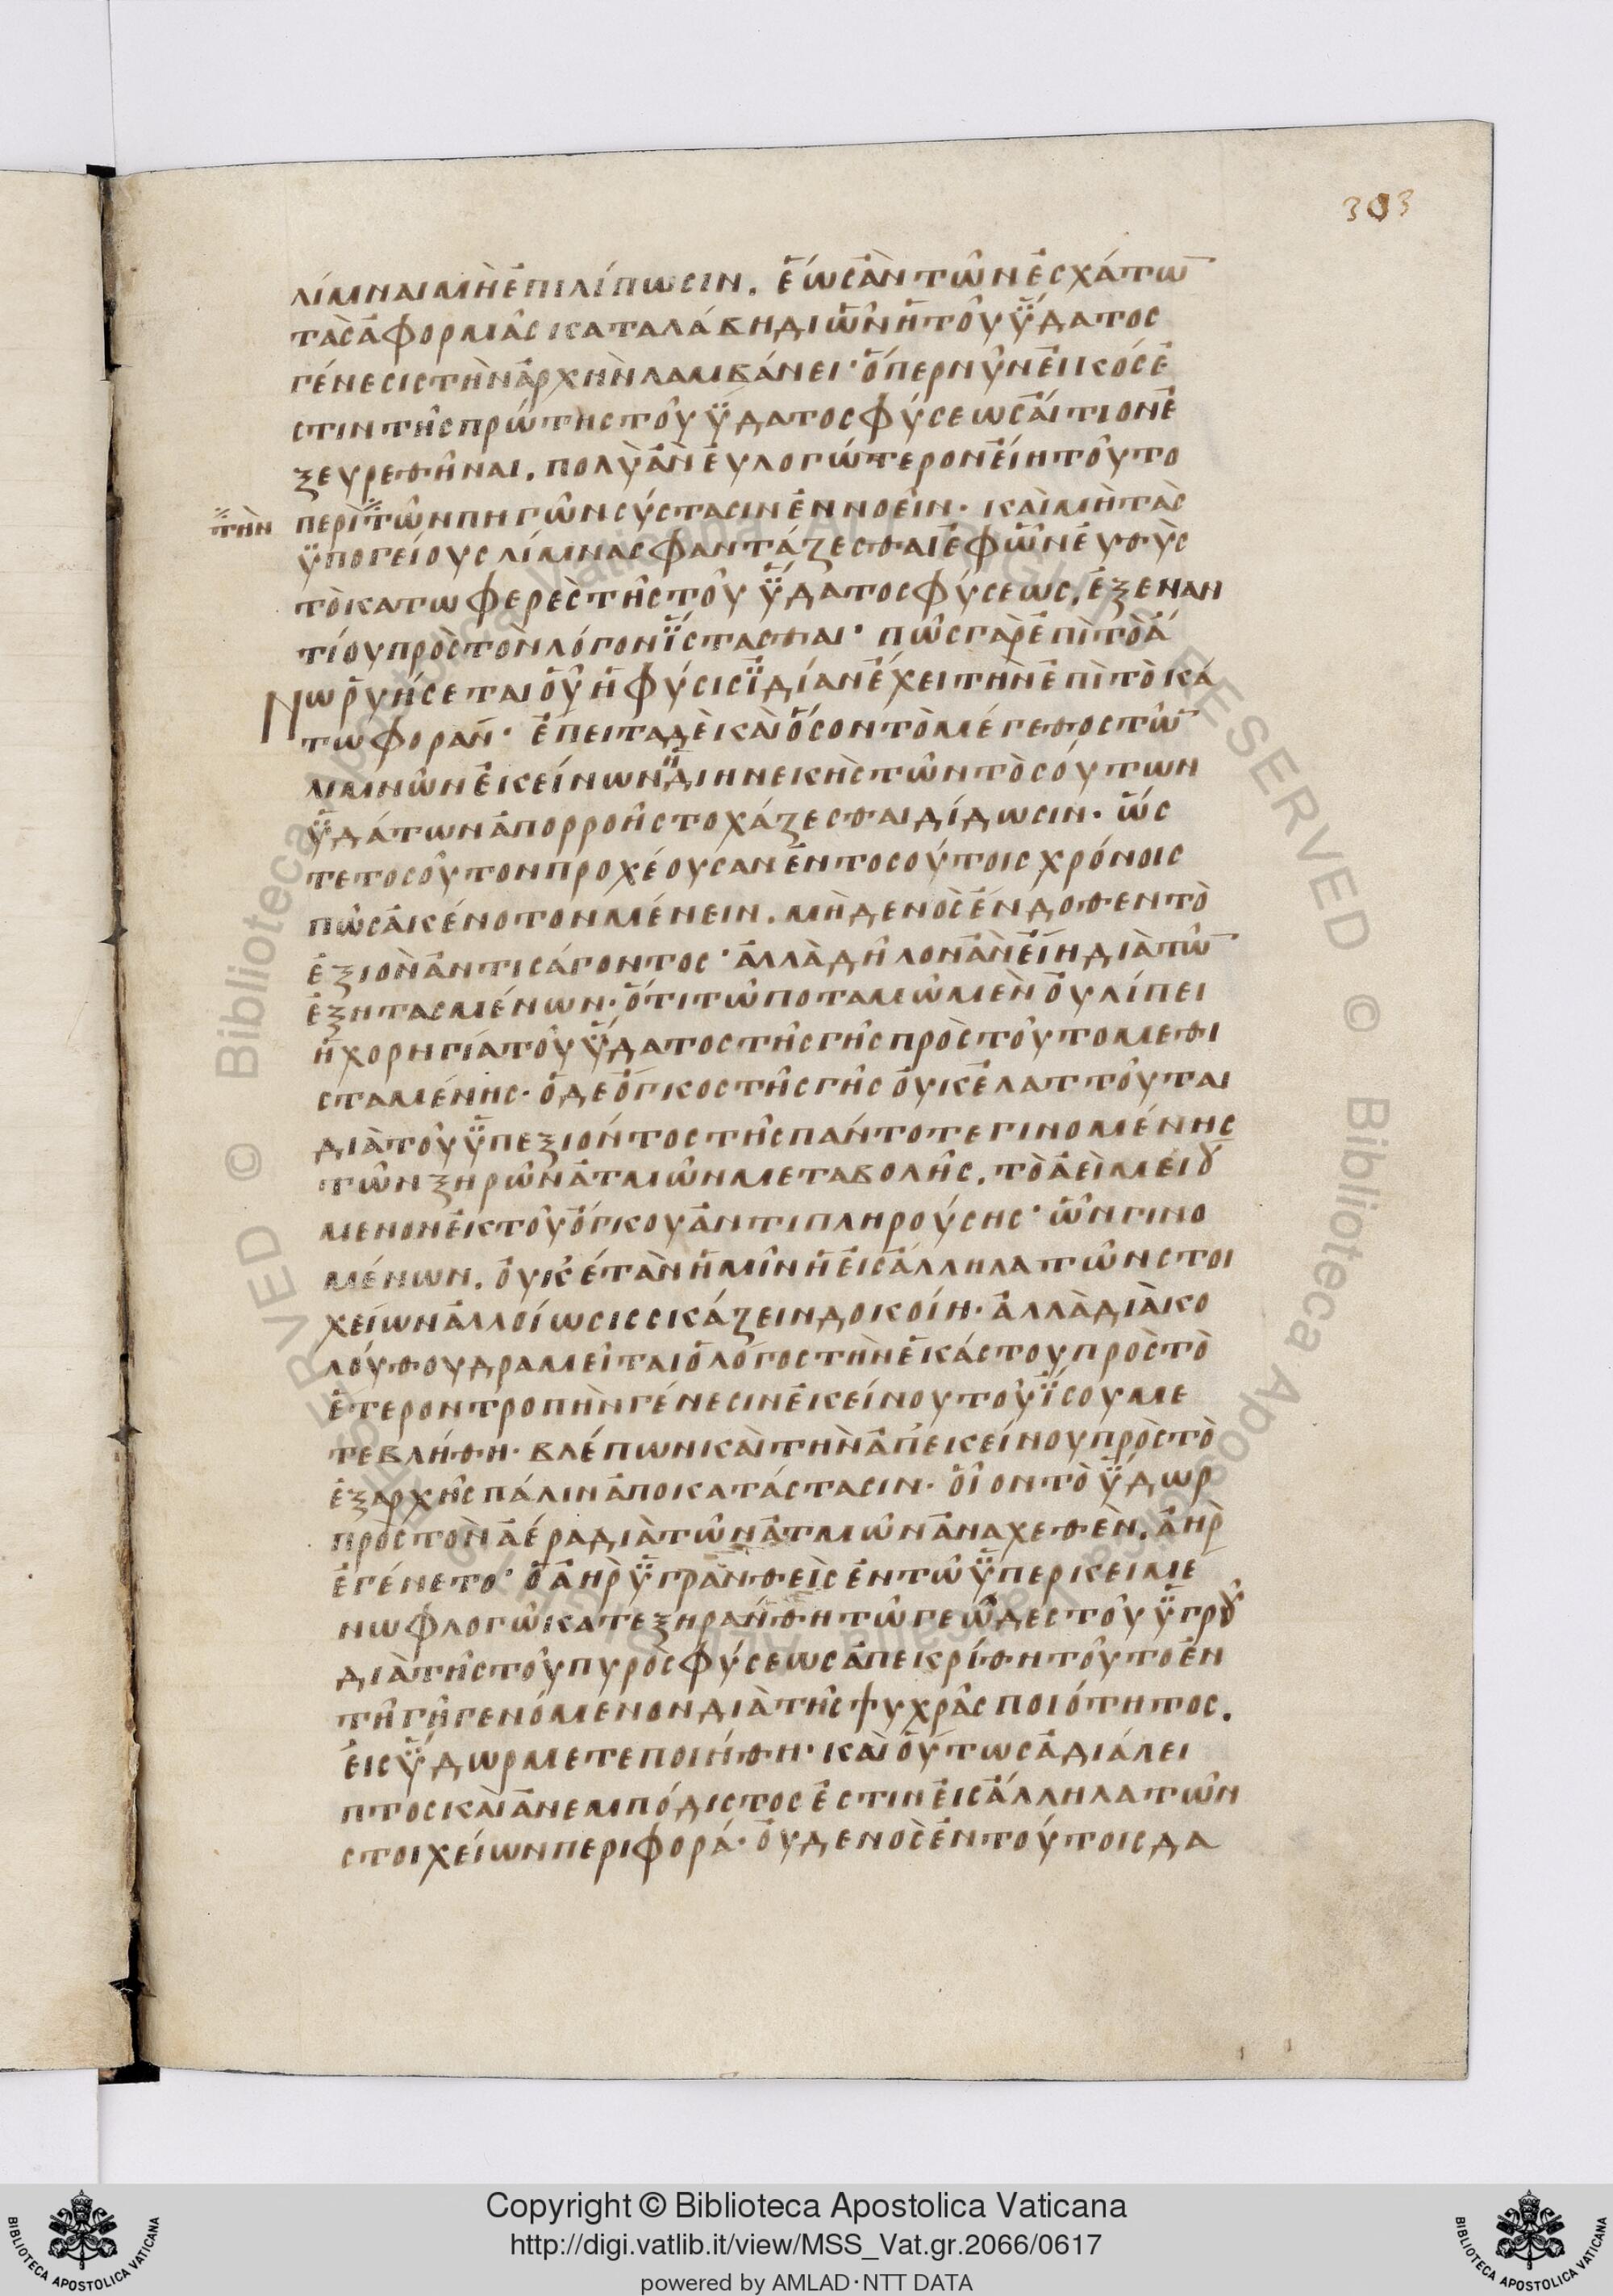 303
λίμναι μὴ ἐπιλίπωσιν. ἕως ἂν τῶν ἐσχάτω̅
τὰς ἀφορμὰς καταλάβη δι ὧν ἡ τοῦ ὕδατος
γένεσις τὴν ἀρχὴν λαμβάνει· ὅπερ νῦν ἐικός ἐ
στιν τῆς πρώτης τοῦ ὕδατος φύσεως ἄιτιον ἐ
ξευρεθῆναι. πολὺ ἂν ἐυλογώτερον ἐίη τοῦτο
τὴν περὶ τῶν πηγῶν σύστασιν ἐννοεῖν· καὶ μὴ τὰς
ὑπογείους λίμνας φαντάζεσθαι ἐφ ὧν ἐυθὺς
τὸ κατωφερὲς τῆς τοῦ ὕδατος φύσεως, ἐξεναν
τίου πρὸς τὸν λόγον ἵστασθαι· πῶς γὰρ ἐπὶ τὸ ἄ
νω ῥυήσεται οὗ ἡ φύσις ἰδίαν ἔχει τὴν ἐπὶ τὸ κά
τω φοράν· ἔπειτα δὲ καὶ ὅσον τὸ μέγεθος τῶ̅
λιμνῶν ἐκείνων ἡ διηνεκὴς τῶν τὸσούτων
ὑδάτων ἀπορροὴ στοχάζεσθαι δίδωσιν· ὥσ
τε τοσοῦτον προχέουσαν ἐν τοσούτοις χρόνοις
πῶς ἀκένοτον μένειν. μὴδενὸς ἔνδοθεν τὸ
ἐξιὸν ἀντισάγοντος· ἀλλὰ δῆλον ἂν ἐίη διὰ τῶ̅
ἐξητασμένων· ὅτι τῶ ποταμῶ μὲν ὀυ λίπει
ἡ χορηγία τοῦ ὕδατος τῆς γῆς πρὸς τοῦτο μεθι
σταμένης· ὁ δε ὄγκος τῆς γῆς ὀυκ ἐλαττοῦται
διὰ τοῦ ὑπεξιόντος τῆς πάντοτε γινομένης
τῶν ξηρῶν ἀτμῶν μεταβολῆς. τὸ ἀεὶ μειȣ́
μενον ἐκ τοῦ ὄγκου ἀντιπληρούσης· ὧν γινο
μένων. ὀυκ έτ ὰν ἡμῖν ἡ ἐις ἄλληλα τῶν στοι
χείων ἀλλοίωσις σκάζειν δοκοίη· ἀλλὰ διὰ κο
λούθου δραμεῖται ὁ λόγος τὴν ἑκάστου πρὸς τὸ
ἕτερον τροπὴν γένεσιν ἐκείνου τοῦ ἴσου με
τεβλήθη· βλέπων καὶ τὴν ἀπ ἐκείνου πρὸς τὸ
ἐξαρχῆς πάλιν ἀποκατάστασιν· οἷον τὸ ὕδωρ
πρὸς τὸν ἀέρα διὰ τῶν ἀτμῶν ἀναχεθὲν. ἀὴρ
ἐγένετο· ὁ ἀὴρ ὑγρανθεὶς ἐν τῶ ὑπερκειμέ
νω φλογῶ κατεξηράνθη τῶ γεῶδες τοῦ ὑγρȣ͂
διὰ τῆς τοῦ πυρὸς φύσεως ἀπεκρίθη τοῦτο ἐν
τῆ γῆ γενόμενον διὰ τῆς ψυχρᾶς ποιότητος.
ἐις ὕδωρ μετεποιήθη· καὶ ὅυτως ἀδιάλει
πτος καὶ ἀνεμπόδιστος ἐστιν ἐις ἄλληλα τῶν
στοιχείων περιφορά· ὀυδενὸς ἐν τούτοις δα
Copyright © Biblioteca Apostolica Vaticana
http://digi.vatlib.it/view/MSS_Vat.gr.2066/0617
powered by AMLAD·NTT DATA
BIBLIOTECA APOSTOLICA VATICANA
BIBLIOTECA APOSTOLICA VATICANA